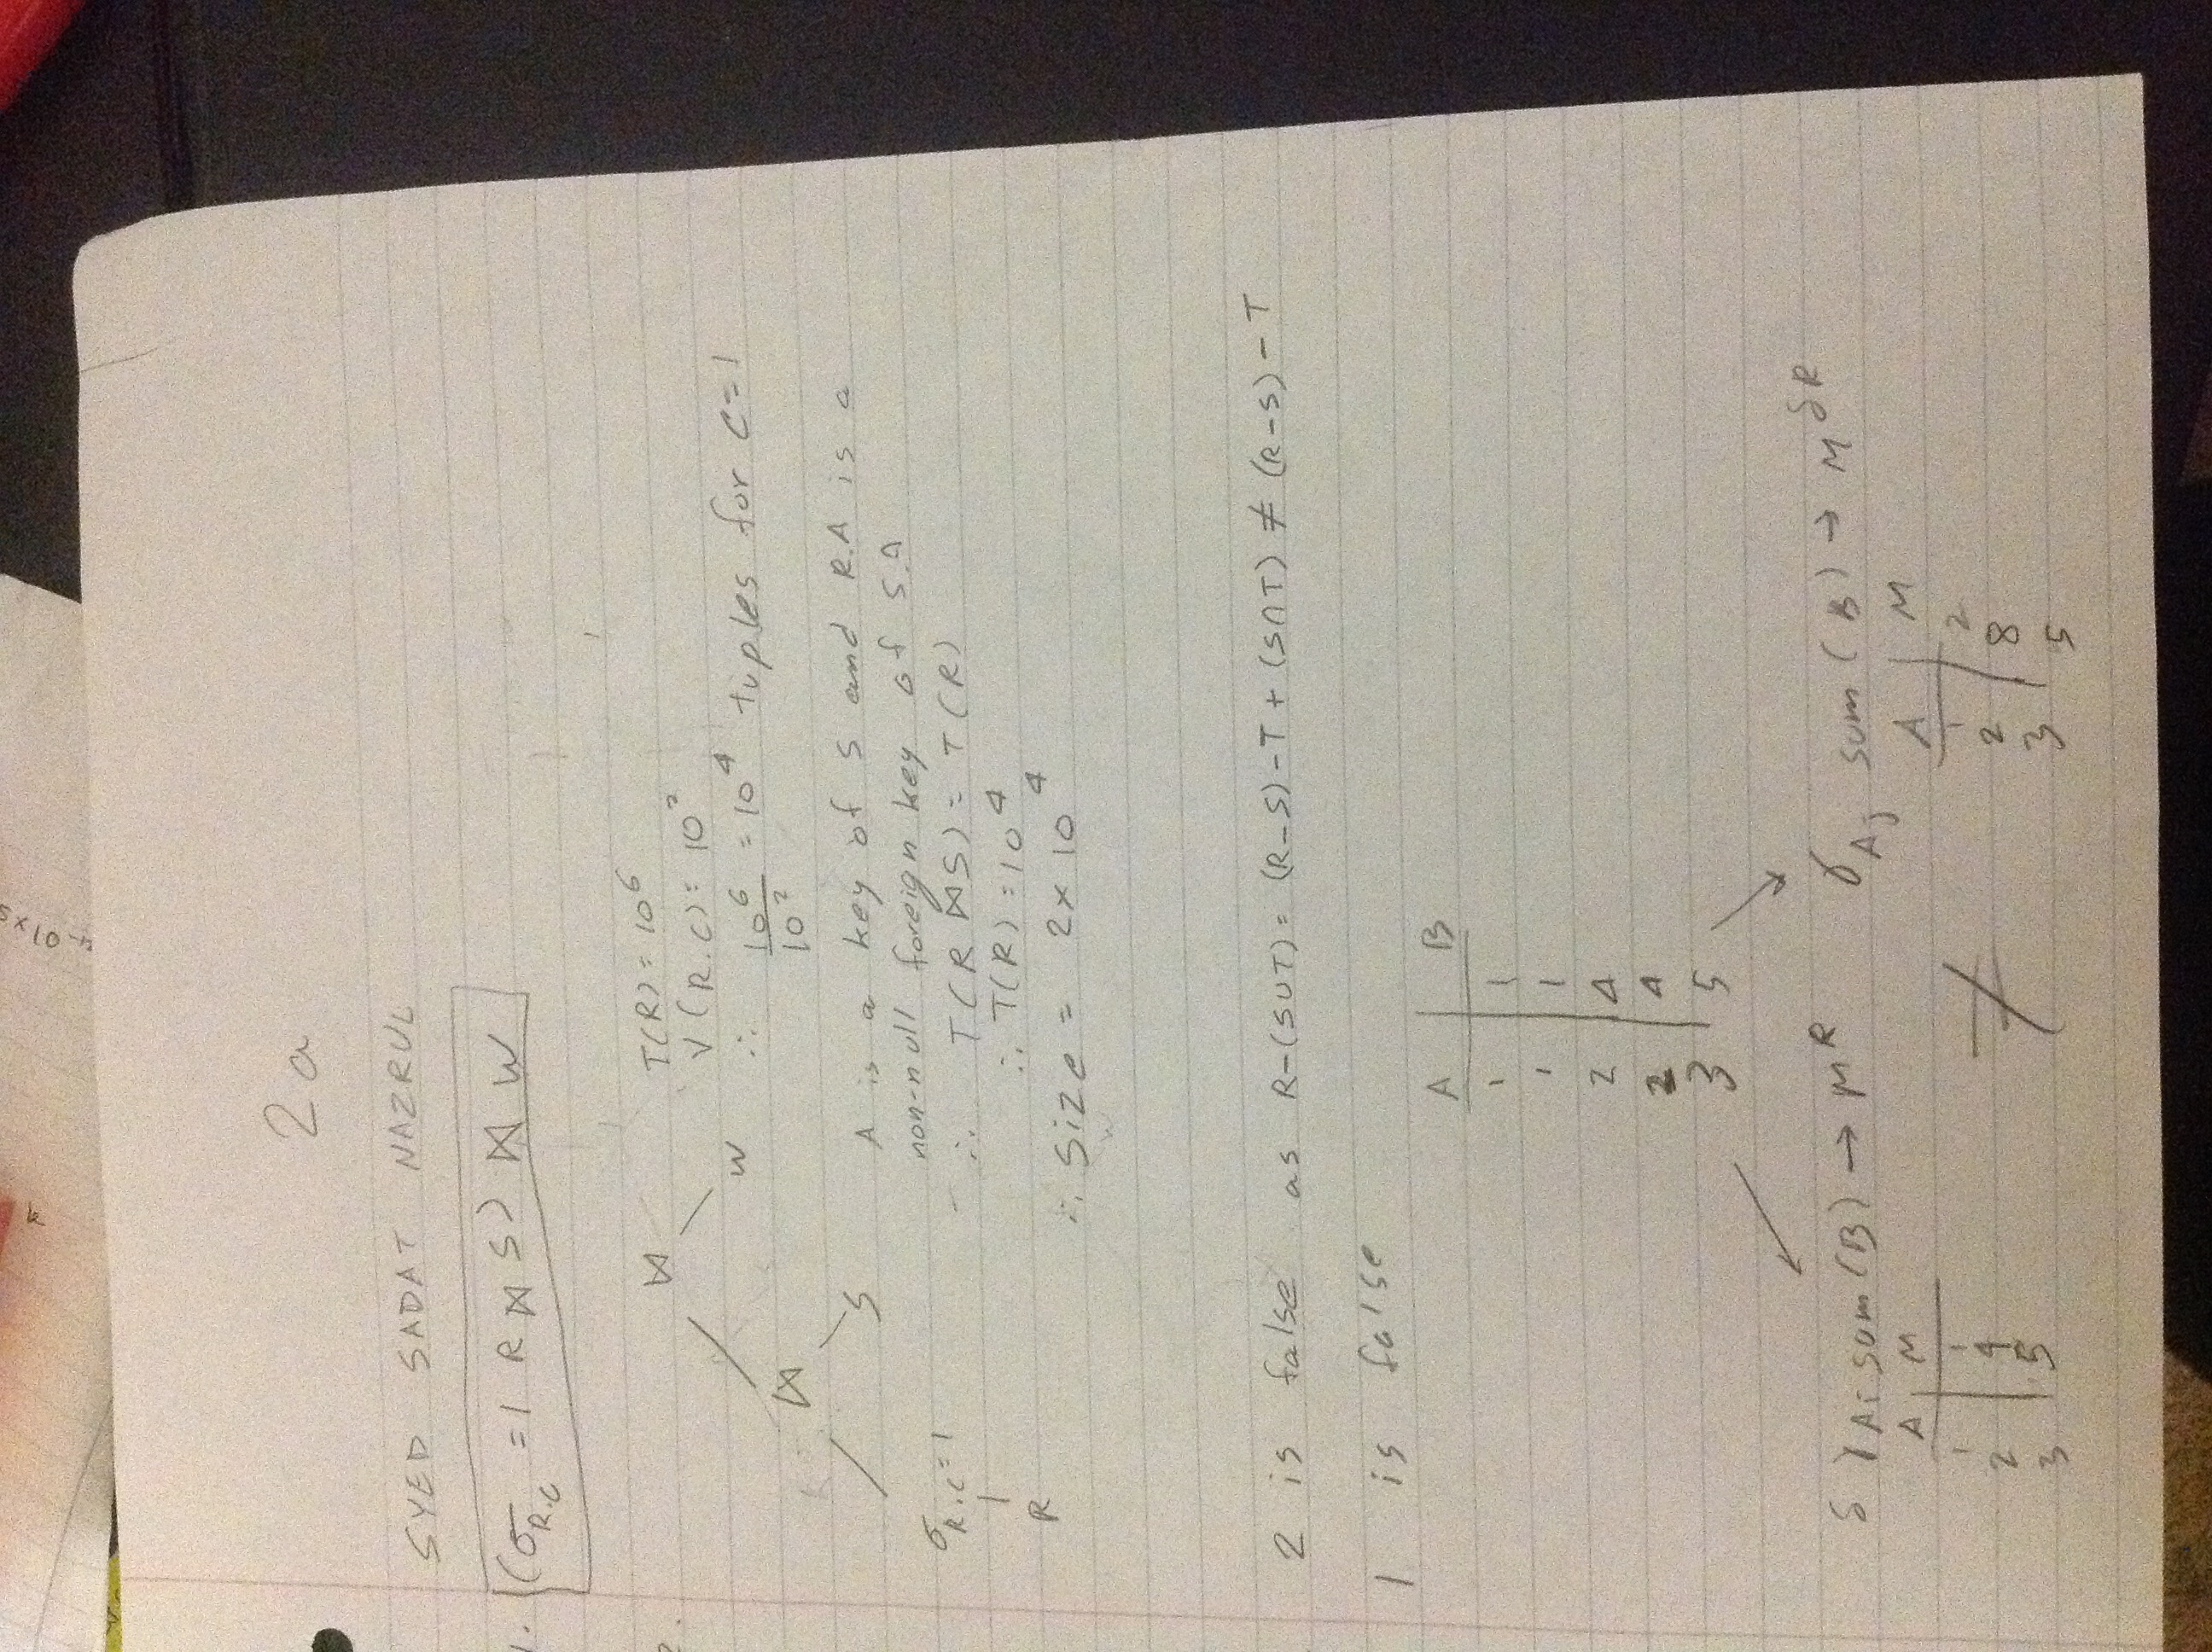 5×10⁻⁴
2a
SYED SADAT NAZRUL
1. (σ_{R.C} =1 R ⋈ S) ⋈ W
2.
⋈
W
⋈
S
σ_{R.C=1}
R
T(R) = 10⁶
V(R.C) = 10²
∴ 10⁶/10² = 10⁴ tuples for C=1
A is a key of S and R.A is a
non-null foreign key of S.A
∴ T(R ⋈ S) = T(R)
∴ T(R) = 10⁴
∴ Size = 2×10⁴
2 is false as R-(S∪T) = (R-S)-T+(S∩T) ≠ (R-S)-T
1 is false
A B
1 1
1 1
2 4
2 4
3 5
δ γ_{A; sum(B) → M} R γ_{A; sum(B) → M} δR
A M A M
1 1 1 2
2 4 ≠ 2 8
3 5 3 5